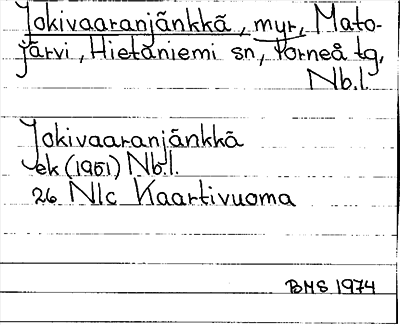 Jokivaaranjänkkä, myr, Mato-
järvi, Hietaniemi sn, Torneå tg,
Nb.l.
Jokivaaranjänkkä
ek (1951) Nb.l.
26 Nlc Kaartivuoma
BMS 1974